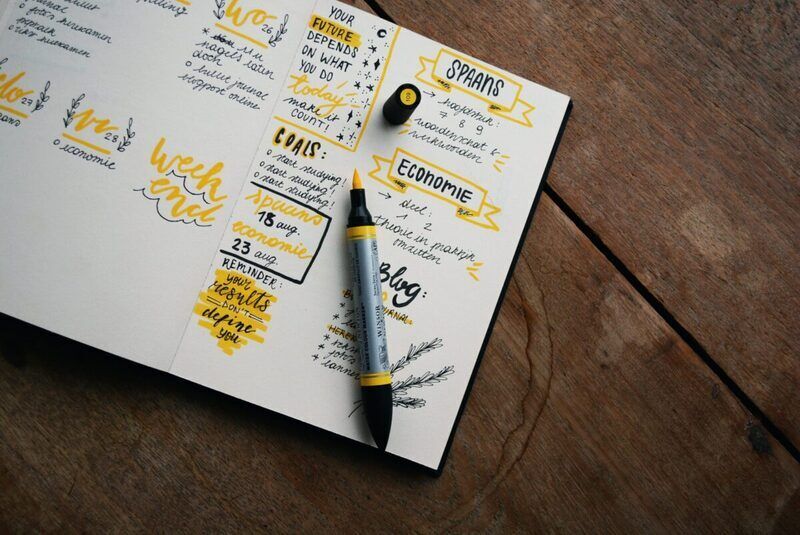 foto's herexamen
herexamen
wo 26
nagels laten
doen
o bullet journal
blogpost online
do 27
vr 28
o economie
week
end
YOUR
FUTURE
DEPENDS
ON WHAT
YOU DO
today
make it
COUNT!
GOALS:
o start studying!
o start studying!
o start studying!
spaans
18 aug.
economie
23 aug.
REMINDER:
your
results
DON'T
define
you
SPAANS
→ hoofdstuk:
7 8 9
woordenschat &
werkwoorden
ECONOMIE
→ deel:
1 2
theorie in
omzetten
Blog:
WINSOR